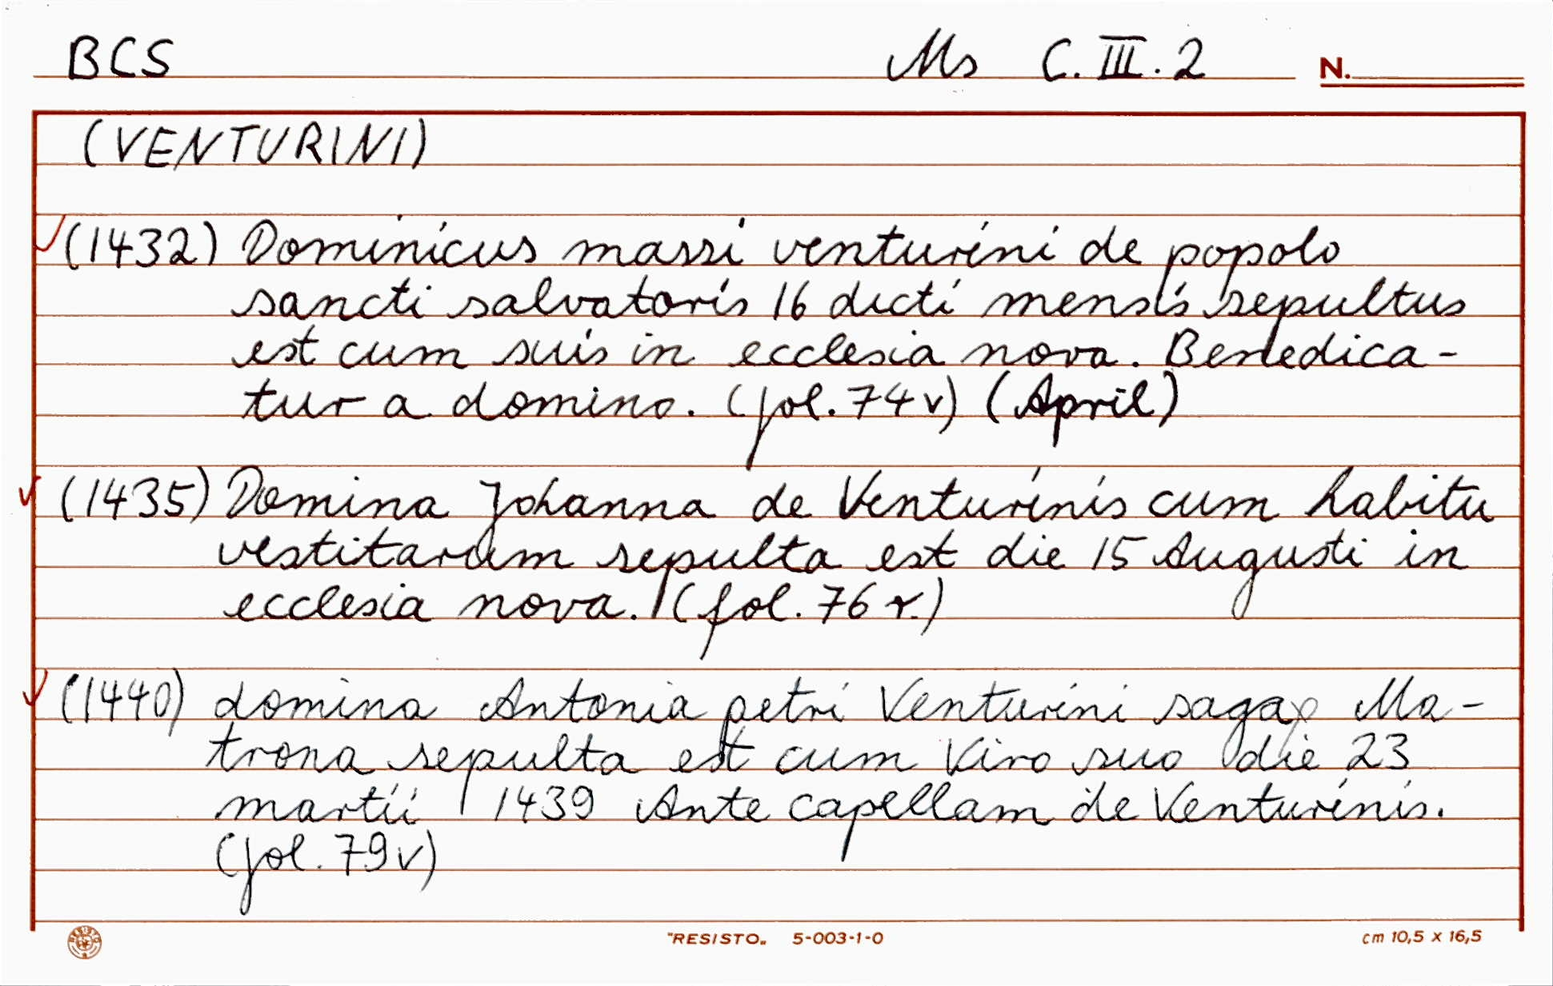 BCS Ms C.III.2 N.
(VENTURINI)
(1432) Dominicus massi venturini de popolo
sancti salvatoris 16 dicti mensis sepultus
est cum suis in ecclesia nova. Benedica-
tur a domino. (fol. 74v) (April)
(1435) Domina Johanna de Venturinis cum habitu
vestitarum sepulta est die 15 Augusti in
ecclesia nova. (fol. 76 r.)
(1440) domina Antonia petri Venturini sagax Ma-
trona sepulta est cum Viro suo die 23
martii 1439 Ante capellam de Venturinis.
(fol. 79v)
"RESISTO„ 5-003-1-0 cm 10,5 x 16,5